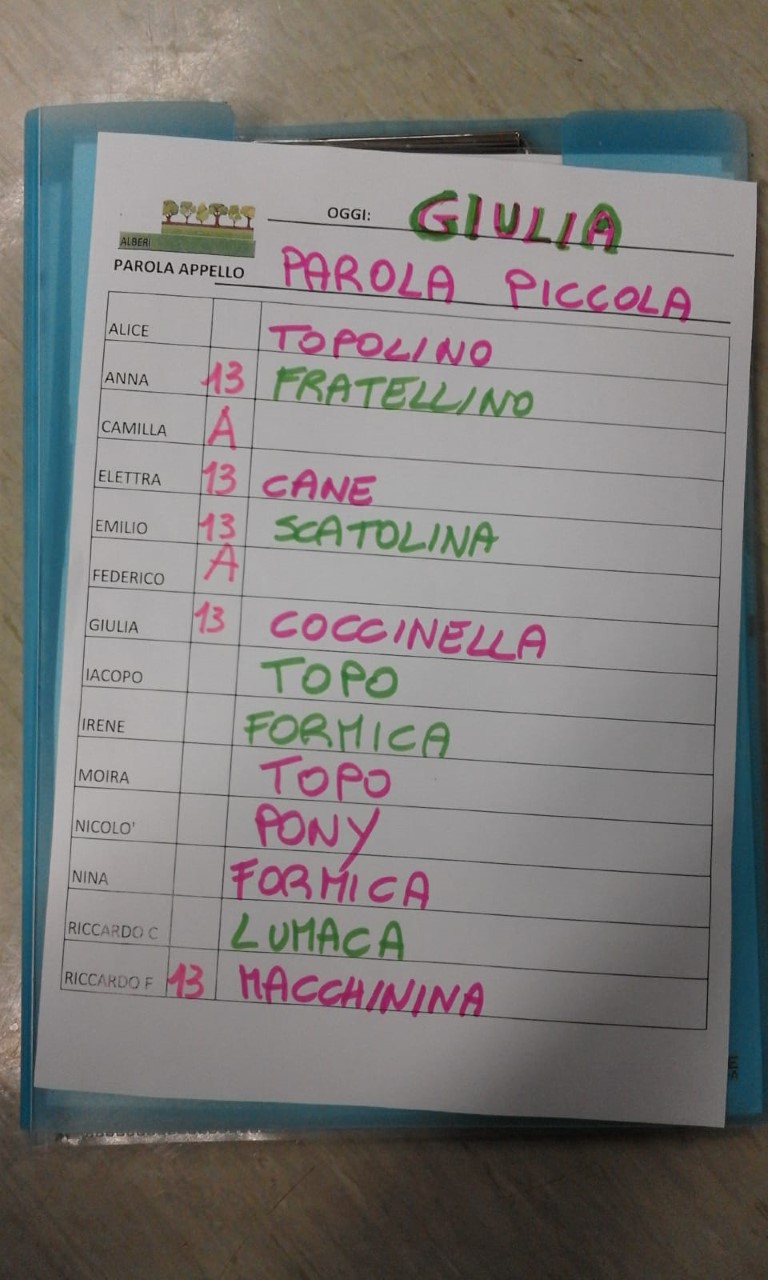 OGGI: GIULIA
ALBERI
PAROLA APPELLO PAROLA PICCOLA
ALICE TOPOLINO
ANNA 13 FRATELLINO
CAMILLA A
ELETTRA 13 CANE
EMILIO 13 SCATOLINA
FEDERICO A
GIULIA 13 COCCINELLA
IACOPO TOPO
IRENE FORMICA
MOIRA TOPO
NICOLO' PONY
NINA FORMICA
RICCARDO C LUMACA
RICCARDO F 13 MACCHININA